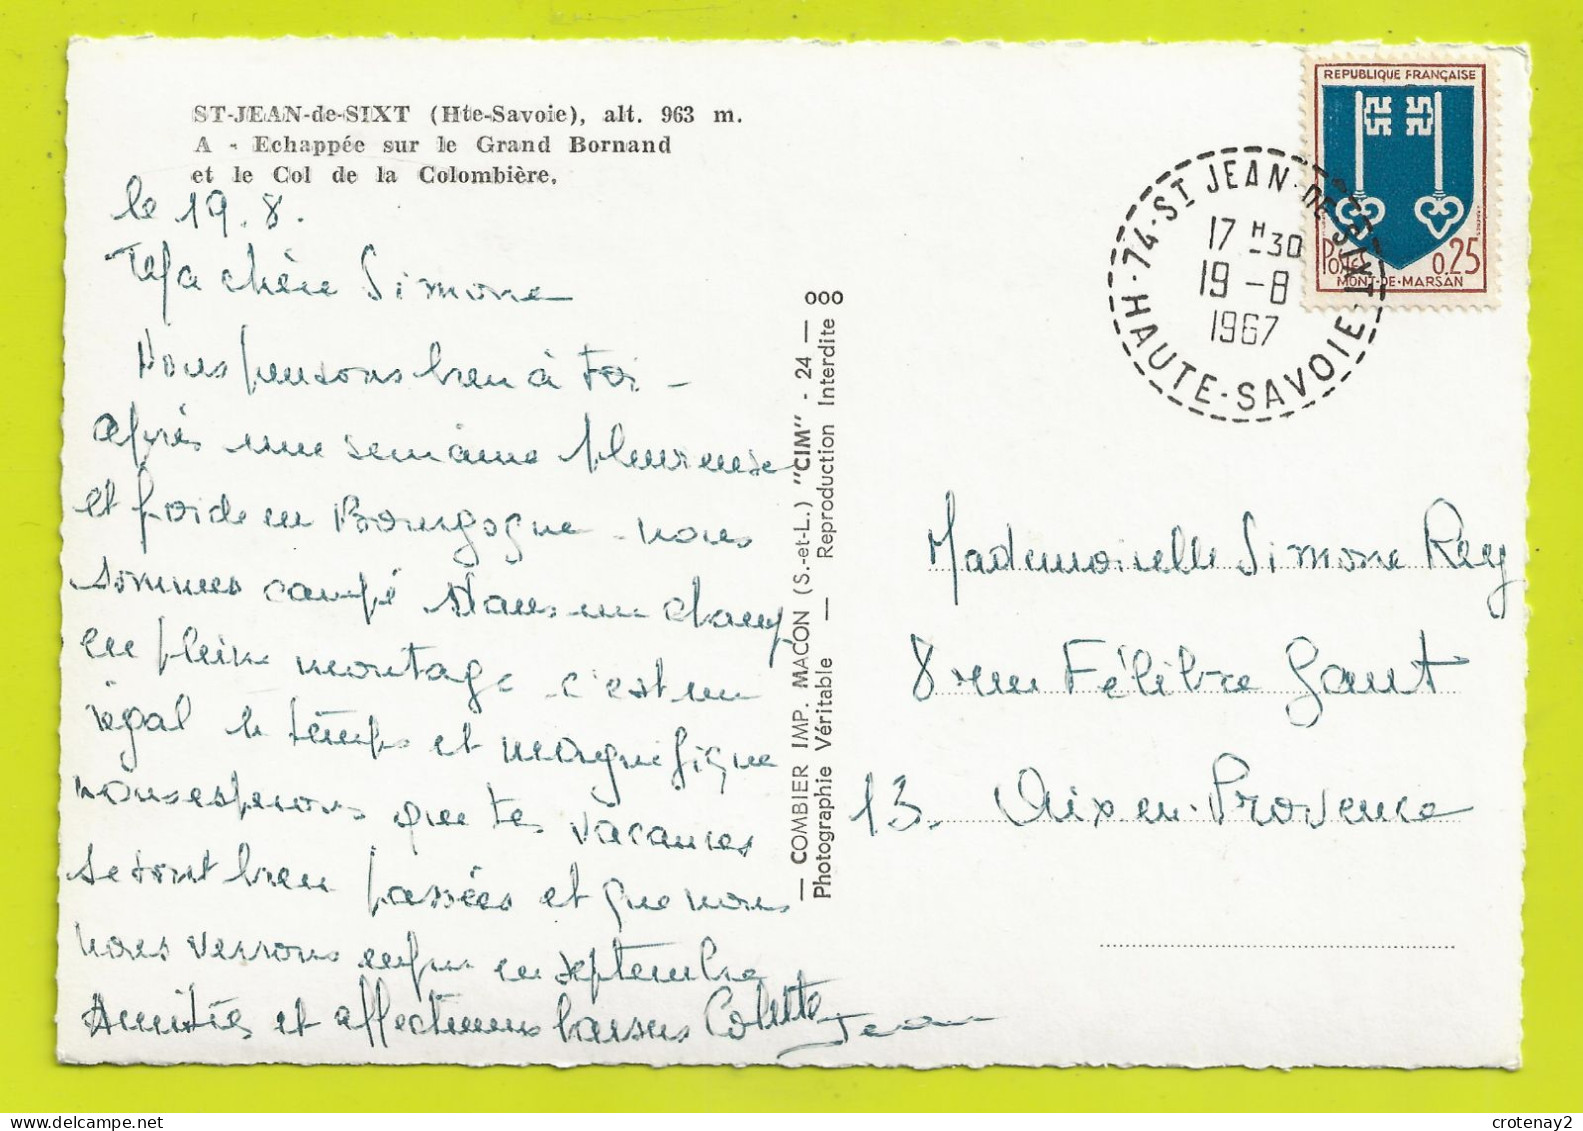 ST-JEAN-de-SIXT (Hte-Savoie), alt. 963 m.
A - Echappée sur le Grand Bornand
et le Col de la Colombière.
le 19.8.
Ma chère Simone
Nous pensons bien à toi -
après une semaine pluvieuse
et froide en Bourgogne - nous
sommes campé dans un champ
en plein montage c'est un
régal le temps et magnifique
nous esperons que tes vacances
seront bien passées et que nous
nous verrons enfin en septembre
Amitiés et affectueux baisers Colette
Jean
— COMBIER IMP. MACON (S.-et-L.) "CIM" - 24 — 000
Photographie Véritable — Reproduction Interdite
REPUBLIQUE FRANÇAISE
Postes 0.25
MONT-DE-MARSAN
74-ST JEAN-DE-SIXT
17 H 30
19 -8
1967
HAUTE-SAVOIE
Mademoiselle Simone Rey
8 rue Félibre Gaut
13. Aix en Provence
crotenay2